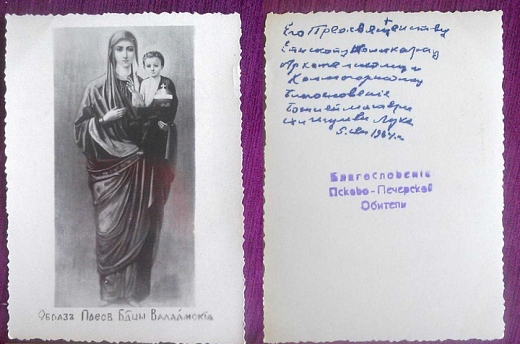 Образъ Пресв Бцы Валаамскія
Его Преосвященству
Епископу Поликарпу
Архангельскому и
Холмогорскому
Благословение
Божией Матери
Луке
5. 1964 г.
Благословеніе
Псково-Печерской
Обители